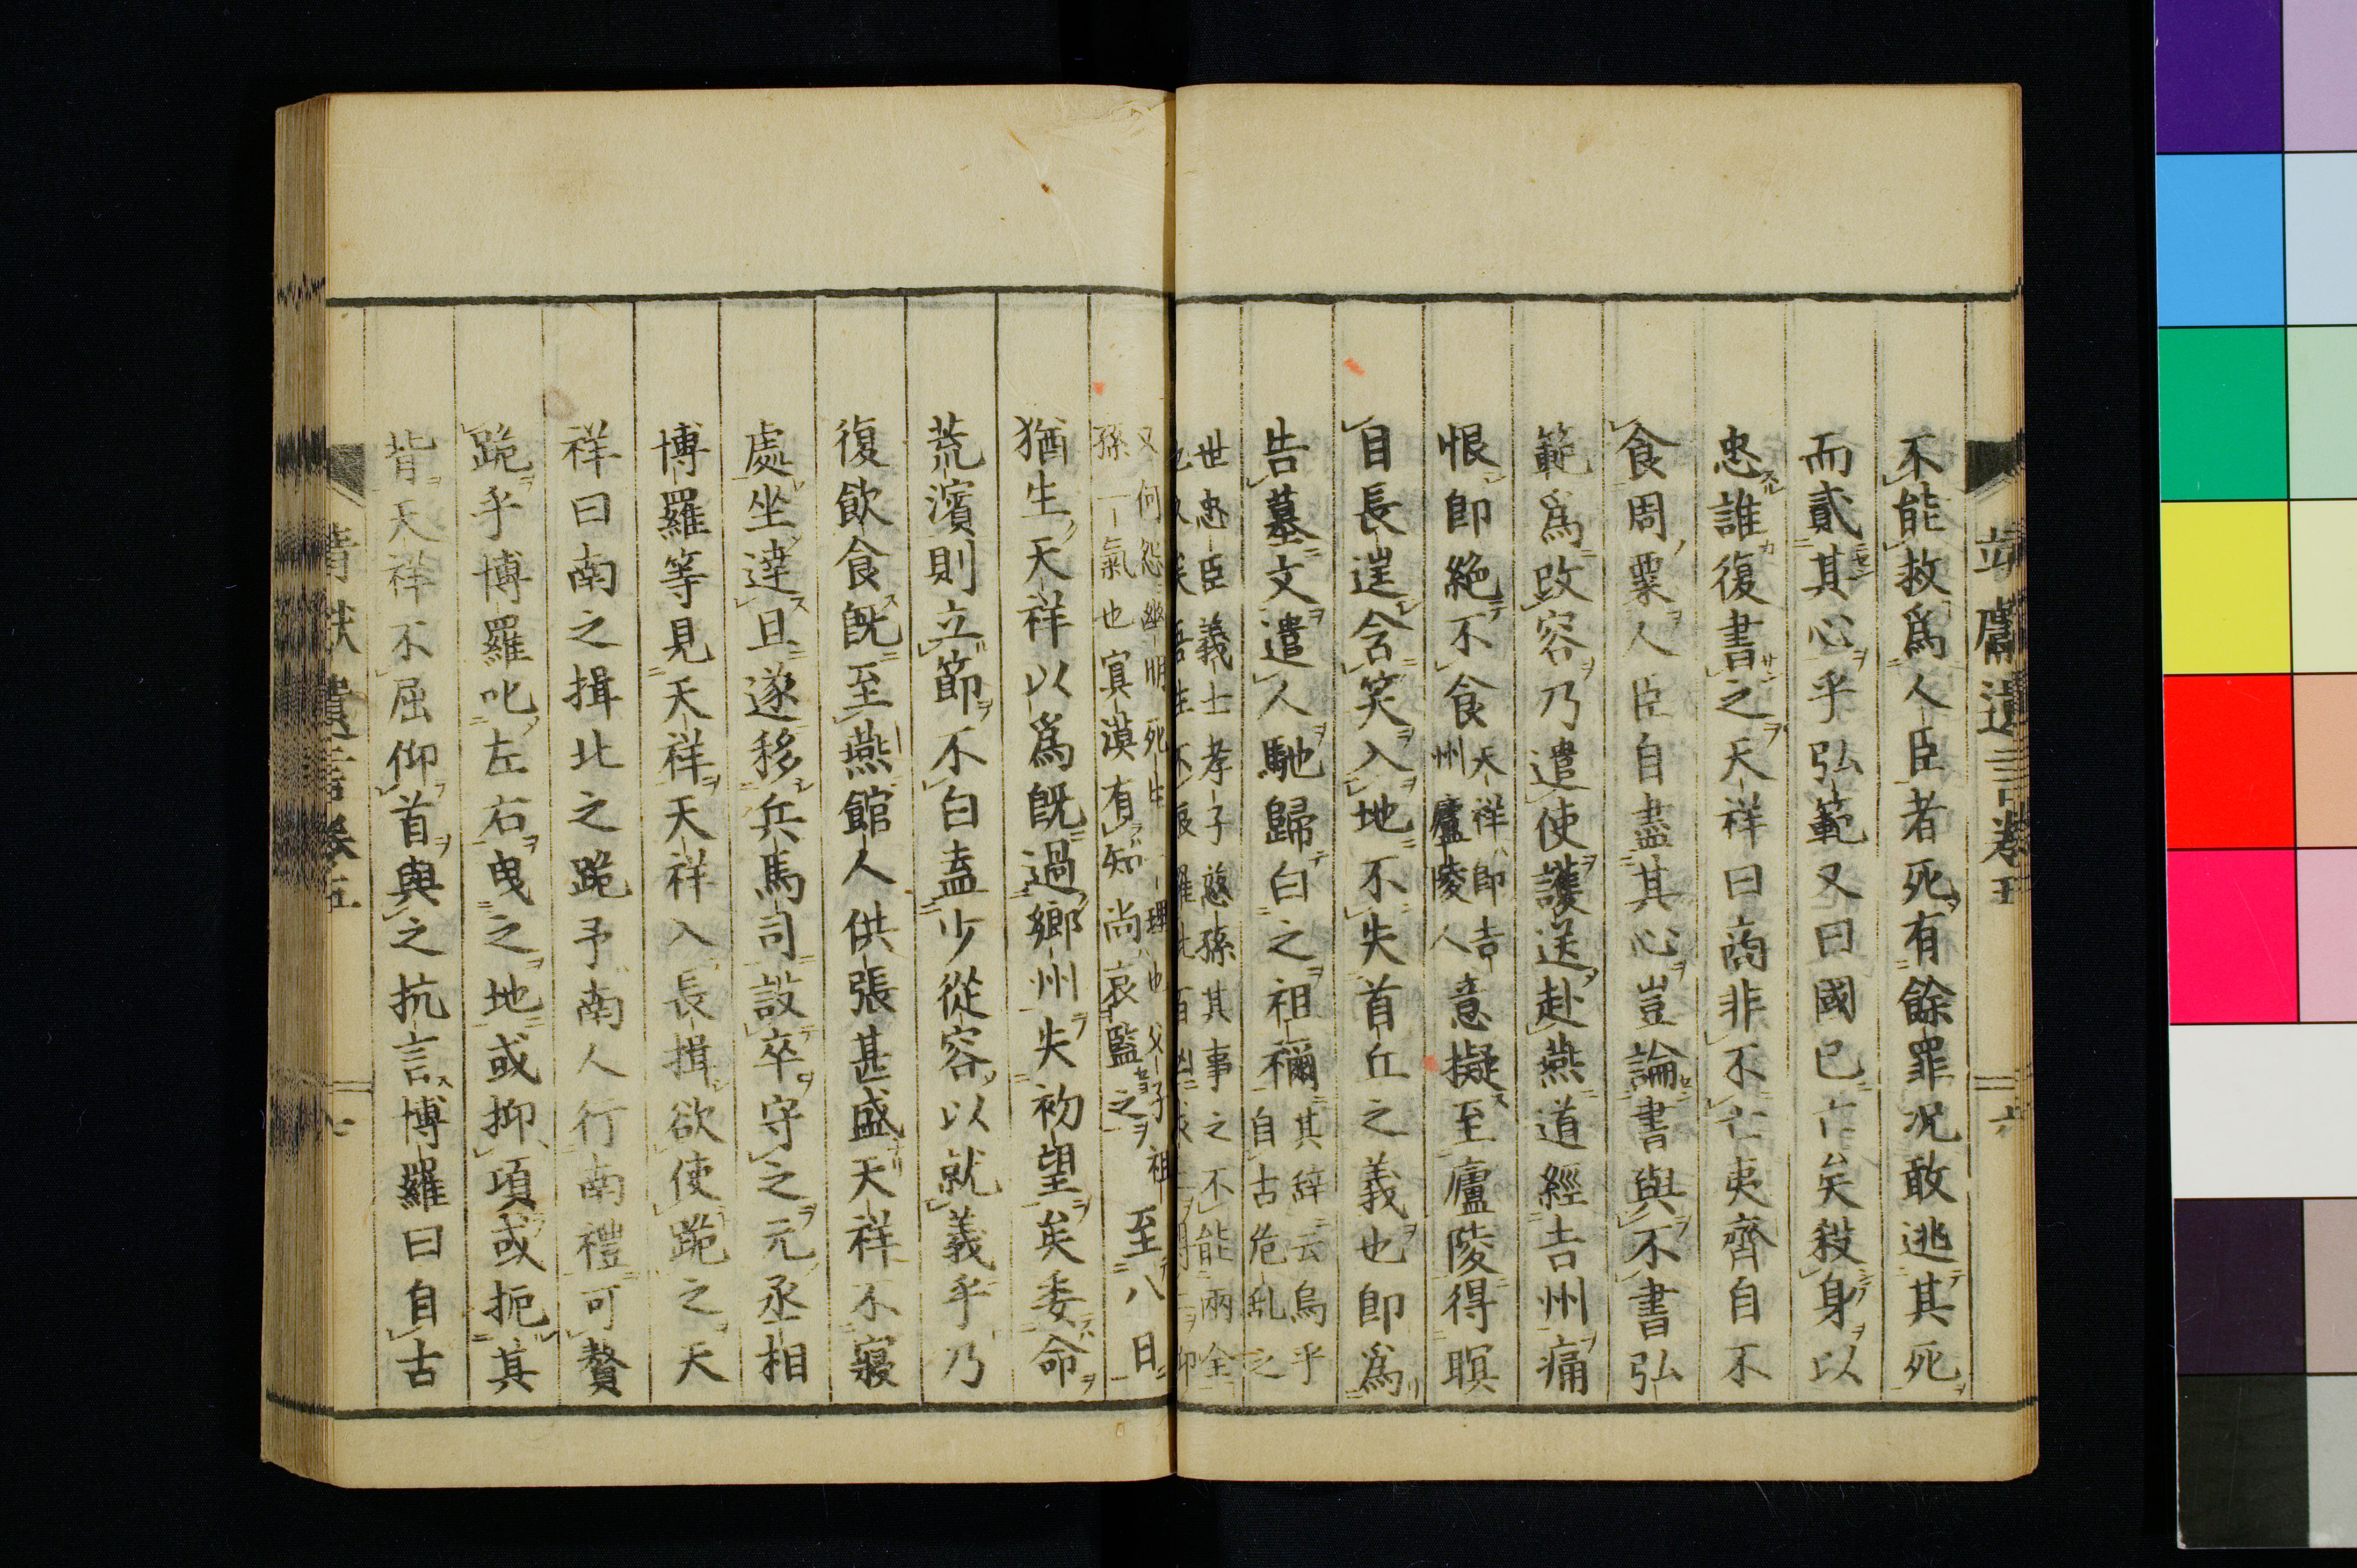 靖獻遺言卷五
六
不能救爲人臣者死有餘罪况敢逃其死
而貳其心乎弘範又曰國已亡矣殺身以
忠誰復書之天祥曰商非不亡夷齊自不
食周粟人臣自盡其心豈論書與不書弘
範爲改容乃遣使護送赴燕道經吉州痛
恨即絶不食
天祥即吉
州廬陵人
意擬至廬陵得瞑
目長逞含笑入地不失首丘之義也即爲
告墓文遣人馳歸白之祖禰
其辭云烏乎
自古危亂之
世忠臣義士孝子慈孫其事之不能兩全
又何怨幽明死生一理也父子祖
孫一氣也冥漠有知尚哀監之
至八日
猶生天祥以爲既過鄉州失初望矣委命
荒濱則立節不白盍少從容以就義乎乃
復飲食既至燕館人供張甚盛天祥不寢
處坐達旦遂移兵馬司設卒守之元丞相
博羅等見天祥天祥入長揖欲使跪之天
祥曰南之揖北之跪予南人行南禮可贅
跪乎博羅叱左右曳之地或抑項或扼其
背天祥不屈仰首與之抗言博羅曰自古
靖獻遺言卷五
七